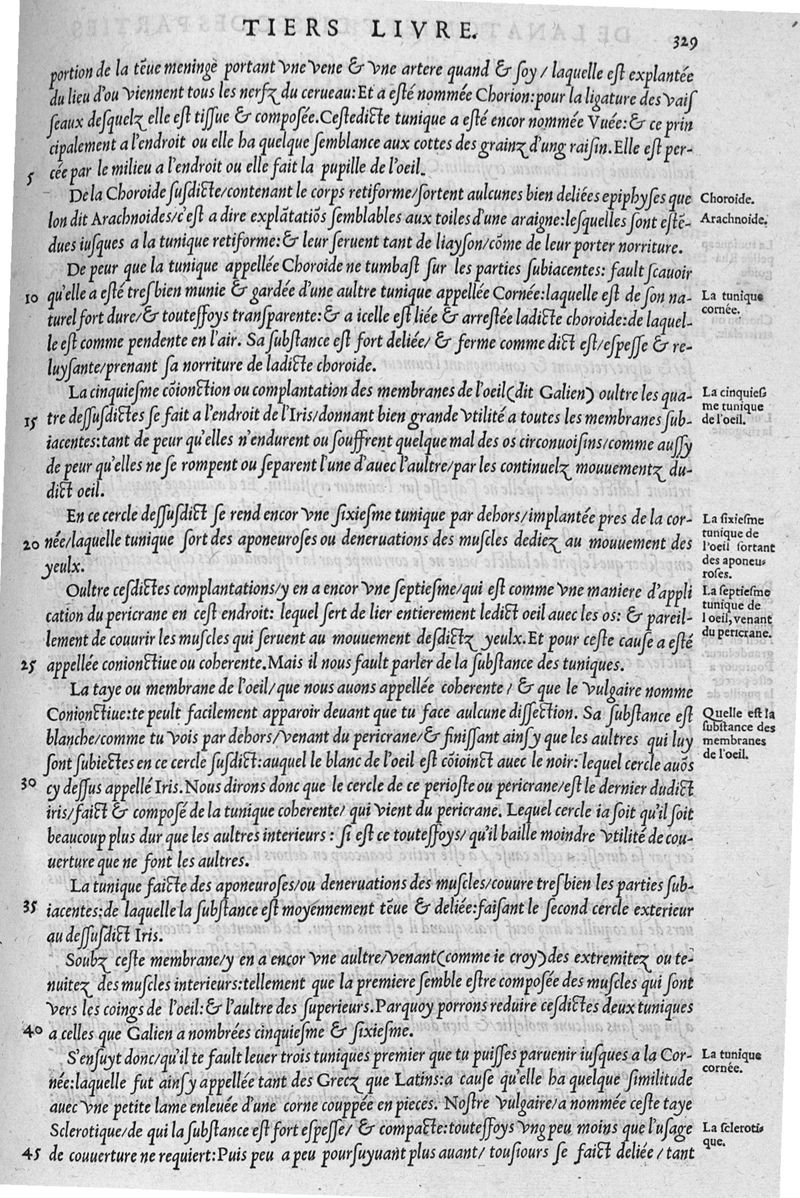 TIERS LIVRE.
329
portion de la tẽue meninge portant vne vene & vne artere quand & soy / laquelle est explantée
du lieu d'ou viennent tous les nerfz du cerueau: Et a esté nommée Chorion: pour la ligature des vais
seaux desquelz elle est tissue & composée. Cestedicte tunique a esté encor nommée Vuée: & ce prin
cipalement a l'endroit ou elle ha quelque semblance aux cottes des grainz d'ung raisin. Elle est per-
5 cée par le milieu a l'endroit ou elle fait la pupille de l'oeil.
De la Choroide susdicte/contenant le corps retiforme/sortent aulcunes bien deliées epiphyses que
Choroide.
lon dit Arachnoides/c'est a dire explãtatiõs semblables aux toiles d'une araigne: lesquelles sont estẽ-
Arachnoide.
dues iusques a la tunique retiforme: & leur seruent tant de liayson/cõme de leur porter norriture.
De peur que la tunique appellée Choroide ne tumbast sur les parties subiacentes: fault scauoir
10 qu'elle a esté tres bien munie & gardée d'une aultre tunique appellée Cornée: laquelle est de son na-
La tunique
cornée.
turel fort dure/& toutesfoys transparente: & a icelle est liée & arrestée ladicte choroide: de laquel-
le est comme pendente en l'air. Sa substance est fort deliée/ & ferme comme dict est/espesse & re-
luysante/prenant sa norriture de ladicte choroide.
La cinquiesme cõionction ou complantation des membranes de l'oeil (dit Galien) oultre les qua-
La cinquies
me tunique
de l'oeil.
15 tre dessusdictes se fait a l'endroit de l'Iris/donnant bien grande vtilité a toutes les membranes sub-
iacentes: tant de peur qu'elles n'endurent ou souffrent quelque mal des os circonuoisins/comme aussy
de peur qu'elles ne se rompent ou separent l'une d'auec l'aultre/par les continuelz mouuementz du-
dict oeil.
En ce cercle dessusdict se rend encor vne sixiesme tunique par dehors/implantée pres de la cor-
La sixiesme
tunique de
l'oeil sortant
des aponeu-
roses.
20 née/laquelle tunique sort des aponeuroses ou deneruations des muscles dediez au mouuement des
yeulx.
Oultre cesdictes complantations/y en a encor vne septiesme/qui est comme vne maniere d'appli
La septiesme
tunique de
l oeil, venant
du pericrane.
cation du pericrane en cest endroit: lequel sert de lier entierement ledict oeil auec les os: & pareil-
lement de couurir les muscles qui seruent au mouuement desdictz yeulx. Et pour ceste cause a esté
25 appellée conionctiue ou coherente. Mais il nous fault parler de la substance des tuniques.
La taye ou membrane de l'oeil/que nous auons appellée coherente / & que le vulgaire nomme
Conionctiue: te peult facilement apparoir deuant que tu face aulcune dissection. Sa substance est
Quelle est la
substance des
membranes
de l'oeil.
blanche/comme tu vois par dehors/venant du pericrane/& finissant ainsy que les aultres qui luy
sont subiectes en ce cercle susdict: auquel le blanc de l'oeil est cõioinct auec le noir: lequel cercle auõs
30 cy dessus appellé Iris. Nous dirons donc que le cercle de ce perioste ou pericrane/est le dernier dudict
iris/faict & composé de la tunique coherente/ qui vient du pericrane. Lequel cercle ia soit qu'il soit
beaucoup plus dur que les aultres interieurs : si est ce toutesfoys/ qu'il baille moindre vtilité de cou-
uerture que ne font les aultres.
La tunique faicte des aponeuroses/ou deneruations des muscles/couure tres bien les parties sub-
35 iacentes: de laquelle la substance est moyennement tẽue & deliée: faisant le second cercle exterieur
au dessusdict Iris.
Soubz ceste membrane/y en a encor vne aultre/venant (comme ie croy) des extremitez ou te-
nuitez des muscles interieurs: tellement que la premiere semble estre composée des muscles qui sont
vers les coings de l'oeil: & l'aultre des superieurs. Parquoy porrons reduire cesdictes deux tuniques
40 a celles que Galien a nombrées cinquiesme & sixiesme.
S'ensuyt donc/qu'il te fault leuer trois tuniques premier que tu puisses paruenir iusques a la Cor-
La tunique
cornée.
née: laquelle fut ainsy appellée tant des Grecz que Latins: a cause qu'elle ha quelque similitude
auec vne petite lame enleuée d'une corne couppée en pieces. Nostre vulgaire/a nommée ceste taye
Sclerotique/de qui la substance est fort espesse/ & compacte: toutesfoys vng peu moins que l'usage
La scleroti-
que.
45 de couuerture ne requiert: Puis peu a peu poursuyuant plus auant/ tousiours se faict deliée/ tant